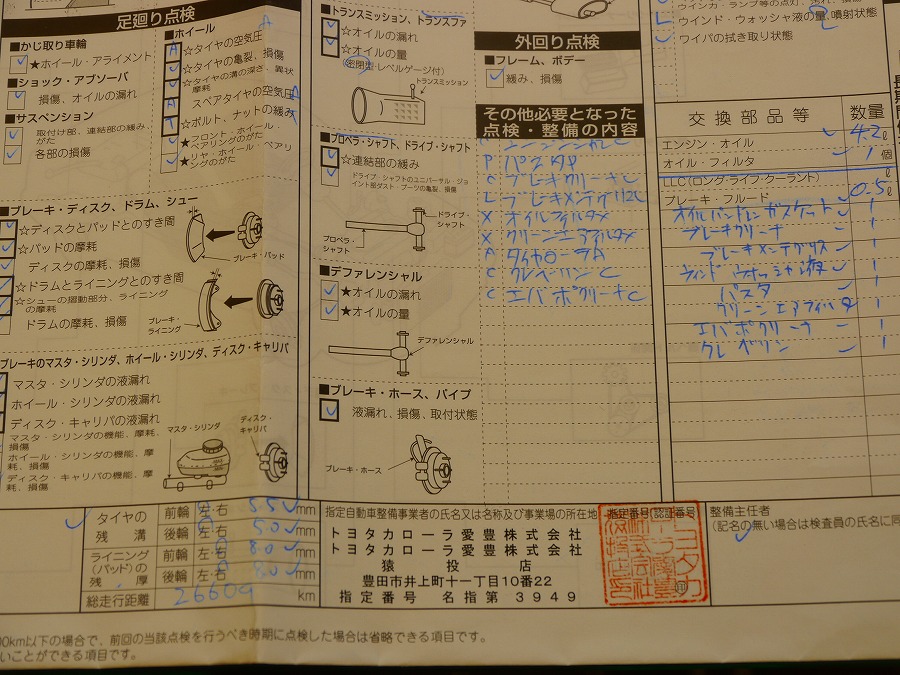 足廻り点検
■かじ取り車輪
★ホイール・アライメント
■ショック・アブソーバ
損傷、オイルの漏れ
■サスペンション
取付け部、連結部の緩み、がた
各部の損傷
■ホイール
A ☆タイヤの空気圧
☆タイヤの亀裂、損傷
☆タイヤの溝の深さ、異状摩耗
A スペアタイヤの空気圧
T ☆ボルト、ナットの緩み
★フロント・ホイール・ベアリングのがた
★リヤ・ホイール・ベアリングのがた
■ブレーキ・ディスク、ドラム、シュー
☆ディスクとパッドとのすき間
☆パッドの摩耗
ディスクの摩耗、損傷
☆ドラムとライニングとのすき間
☆シューの摺動部分、ライニングの摩耗
ドラムの摩耗、損傷
ブレーキ・パッド
ブレーキ・ライニング
ブレーキのマスタ・シリンダ、ホイール・シリンダ、ディスク・キャリパ
マスタ・シリンダの液漏れ
ホイール・シリンダの液漏れ
ディスク・キャリパの液漏れ
マスタ・シリンダの機能、摩耗、損傷
ホイール・シリンダの機能、摩耗、損傷
ディスク・キャリパの機能、摩耗、損傷
マスタ・シリンダ
ディスク・キャリパ
■トランスミッション、トランスファ
☆オイルの漏れ
☆オイルの量
(密閉型・レベルゲージ付)
トランスミッション
■プロペラ・シャフト、ドライブ・シャフト
☆連結部の緩み
ドライブ・シャフトのユニバーサル・ジョイント部ダスト・ブーツの亀裂、損傷
ドライブ・シャフト
プロペラ・シャフト
■デファレンシャル
★オイルの漏れ
★オイルの量
デファレンシャル
■ブレーキ・ホース、パイプ
液漏れ、損傷、取付状態
ブレーキ・ホース
外回り点検
■フレーム、ボデー
緩み、損傷
その他必要となった
点検・整備の内容
P パスタP
C ブレーキクリーナC
X オイルフィルタX
X クリーンエアフィルタX
A タイヤローテA
C クレベリンC
C エバポクリーナC
ウインド・ウォッシャ液の量、噴射状態
ワイパの拭き取り状態
交換部品等 数量
エンジン・オイル 4.2 ℓ
オイル・フィルタ 1 個
LLC(ロング・ライフ・クーラント) ℓ
ブレーキ・フルード 0.5 ℓ
オイルパンドレンガスケット 1
ブレーキクリーナ 1
ブレーキメンテグリス 1
ウィンドウォッシャ液 1
パスタ 1
クリーンエアフィルタ 1
エバポクリーナ 1
クレベリン 1
タイヤの残溝 前輪 左・右 5.5 mm
後輪 左・右 5.0 mm
ライニング(パッド)の残厚 前輪 左・右 8.0 mm
後輪 左・右 8.0 mm
総走行距離 26609 km
指定自動車整備事業者の氏名又は名称及び事業場の所在地 指定番号(認証番号)
トヨタカローラ愛豊株式会社
トヨタカローラ愛豊株式会社
猿投店
豊田市井上町十一丁目10番22
指定番号 名指第 3949
整備主任者
(記名の無い場合は検査員の氏名に同
00km以下の場合で、前回の当該点検を行うべき時期に点検した場合は省略できる項目です。
いことができる項目です。